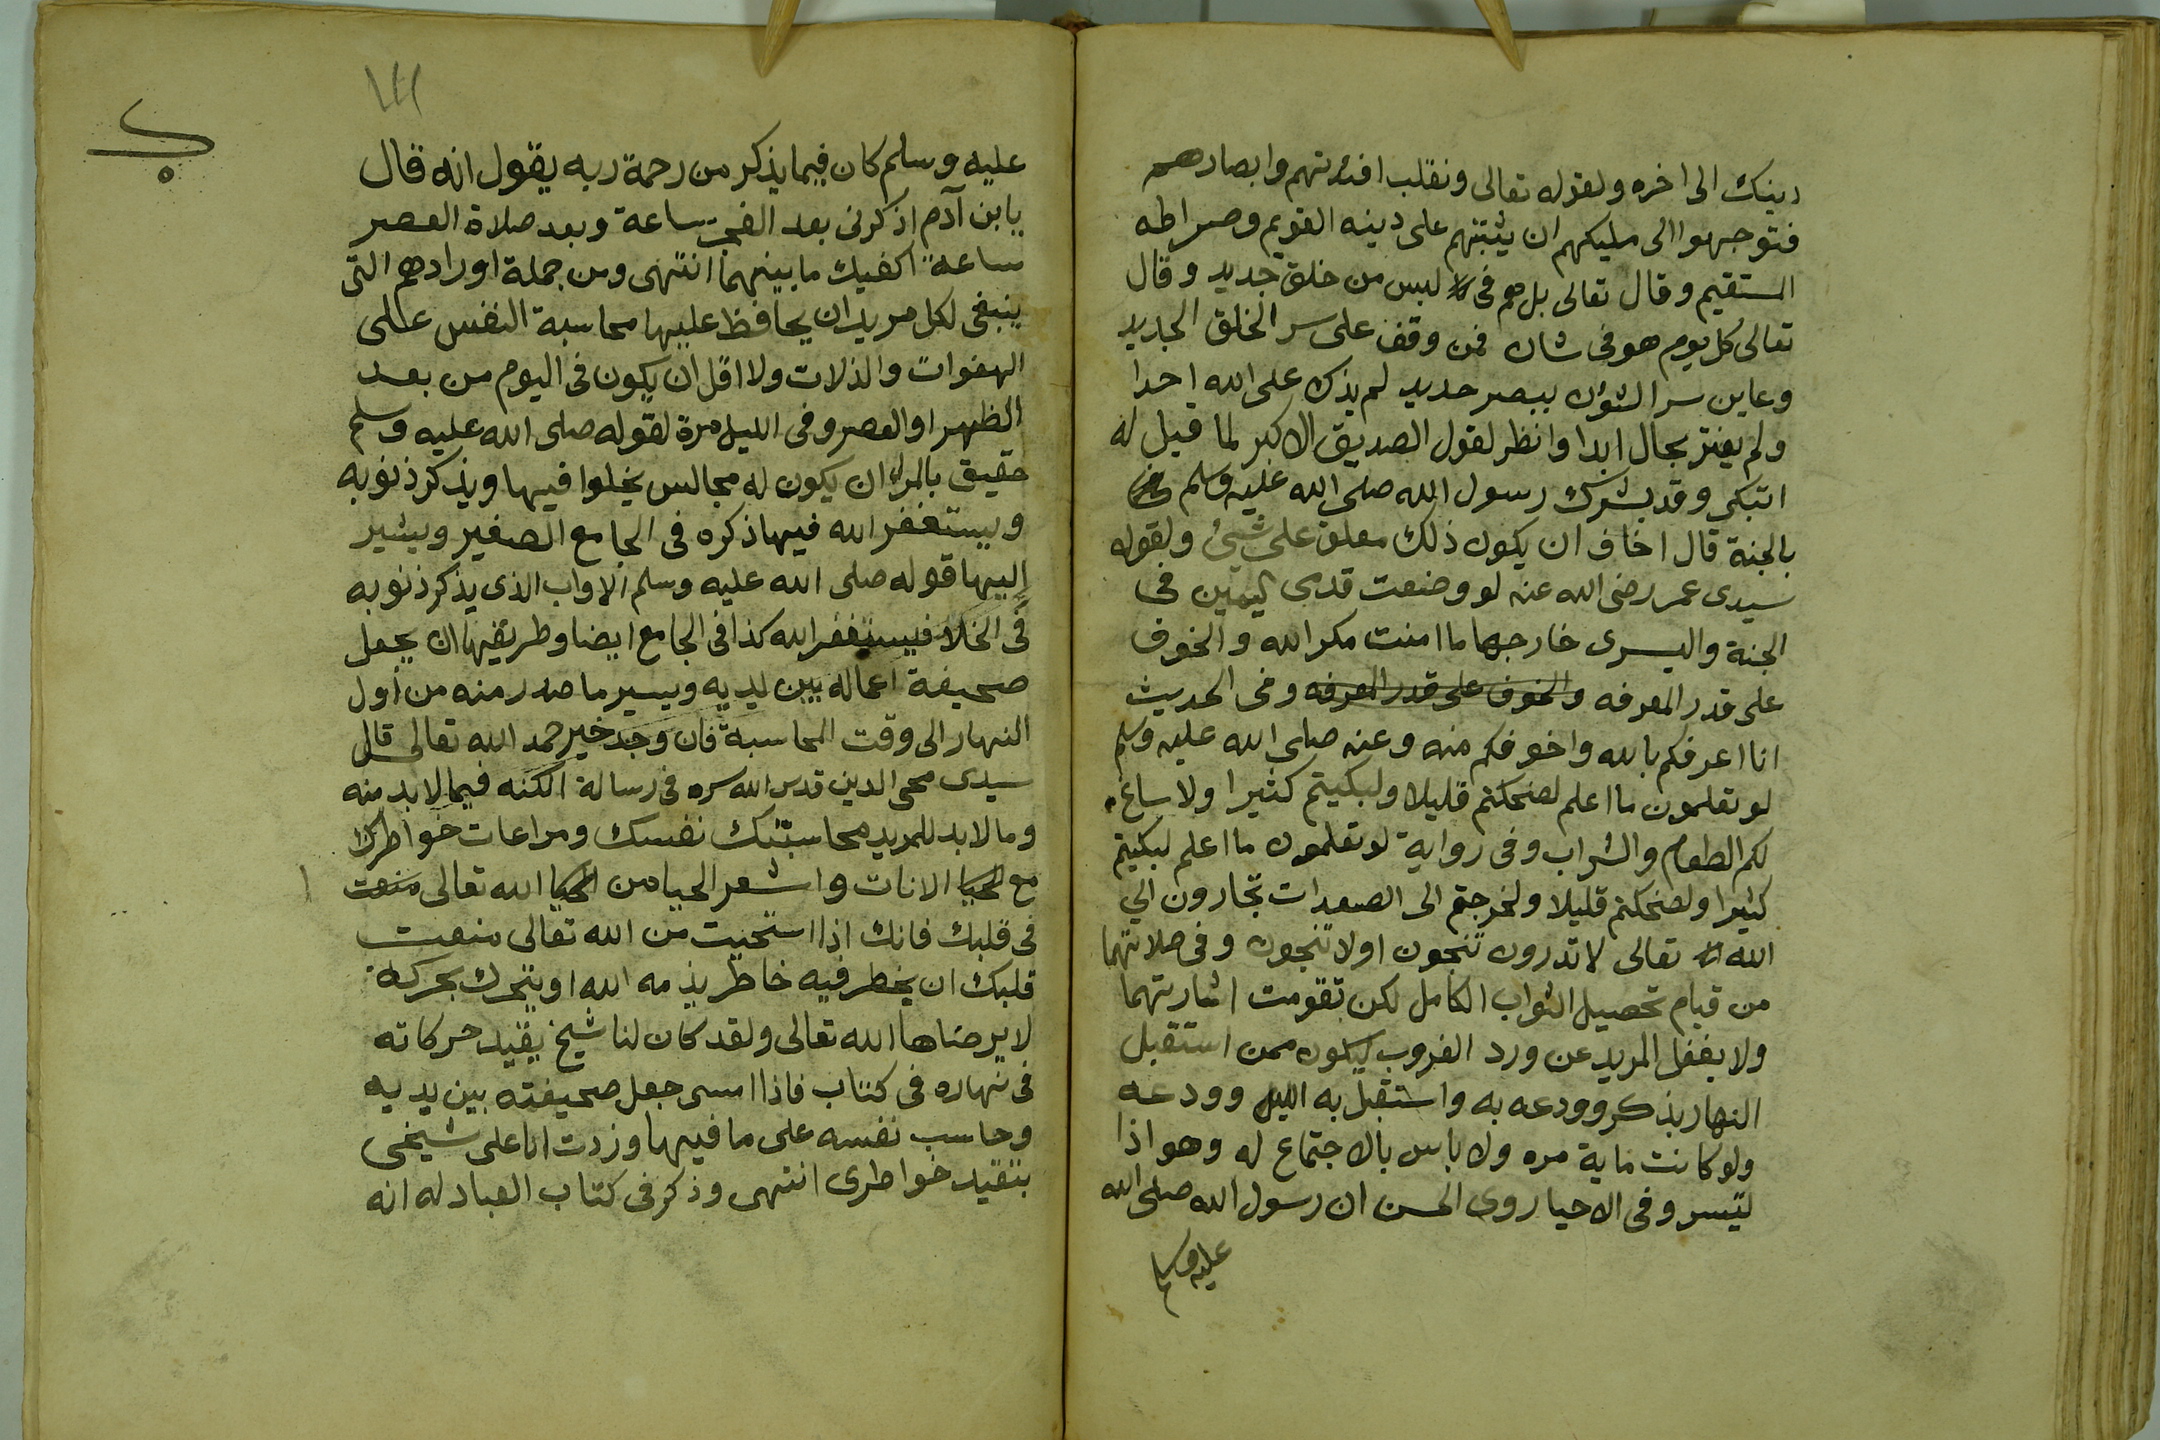 دينك الى اخره ولقوله تعالى ونقلب افئدتهم وابصارهم
فتوجهوا الى مليكهم ان يثبتهم على دينه القويم وصراطه
المستقيم وقال تعالى بل هم فى لبس من خلق جديد وقال
تعالى كل يوم هو فى شان فمن وقف على سر الخلق الجديد
وعاين سر الشؤن ببصر حديد لم يذك على الله احدا
ولم يغتر بحال ابدا وانظر لقول الصديق الاكبر لما قيل له
اتبكى وقد بشرك رسول الله صلى الله عليه وسلم
بالجنة قال اخاف ان يكون ذلك معلق على شيئ ولقوله
سيدى عمر رضى الله عنه لو وضعت قدمى اليمين فى
الجنة واليسرى خارجها ما امنت مكر الله والخوف
على قدر المعرفه والخوف على قدر المعرفه وفى الحديث
انا اعرفكم بالله واخوفكم منه وعنه صلى الله عليه وسلم
لو تعلمون ما اعلم لضحكتم قليلا ولبكيتم كثيرا ولا ساغ
لكم الطعام والشراب وفى رواية لو تعلمون ما اعلم لبكيتم
كثيرا ولضحكتم قليلا ولخرجتم الى الصعدات تجارون الي
الله تعالى لا تدرون تنجون او لا تنجون وفى صلاتهما
من قيام تحصيل الثواب الكامل لكن تقومت اشارتهما
ولا يغفل المريد عن ورد الغروب ليكون ممن استقبل
النهار بذكر وودعه به واستقبل به الليل وودعه
ولو كانت ماية مره ولا باس بالاجتماع له وهو اذا
ليتيسر وفى الاحيا روى الحسن ان رسول الله صلى الله
عليه وسلم
١٣١
عليه وسلم كان فيما يذكر من رحمة ربه يقول انه قال
يا بن آدم اذكرنى بعد الفجر ساعة وبعد صلاة العصر
ساعة اكفيك ما بينهما انتهى ومن جملة اورادهم التى
ينبغى لكل مريد ان يحافظ عليها محاسبة النفس على
الهفوات والذلات ولا اقل ان يكون فى اليوم من بعد
الظهر او العصر وفى الليل مرة لقوله صلى الله عليه وسلم
حقيق بالمرء ان يكون له مجالس يخلوا فيها ويذكر ذنوبه
ويستغفر الله فيها ذكره فى الجامع الصغير ويشير
اليها قوله صلى الله عليه وسلم الاواب الذى يذكر ذنوبه
فى الخلا فيستغفر الله كذا فى الجامع ايضا وطريقها ان يجعل
صحيفة اعماله بين يديه ويسير ما صدر منه من أول
النهار الى وقت المحاسبة فان وجد خير حمد الله تعالى قال
سيدى محى الدين قدس الله سره فى رسالة الكنه فيما لا بد منه
وما لا بد للمريد محاسبتك نفسك ومراعات خواطرك
مع الحيا الانات واشعر الحيا من الحيا الله تعالى منعت
فى قلبك فانك اذا استحيت من الله تعالى منعت
قلبك ان يخطر فيه خاطر يذمه الله او يتحرك بحركة
لا يرضاها الله تعالى ولقد كان لنا شيخ يقيد حركاته
فى نهاره فى كتاب فاذا امسى جعل صحيفته بين يديه
وحاسب نفسه على ما فيها وزدت انا على شيخى
بتقيد خواطرى انتهى وذكر فى كتاب العباد له انه